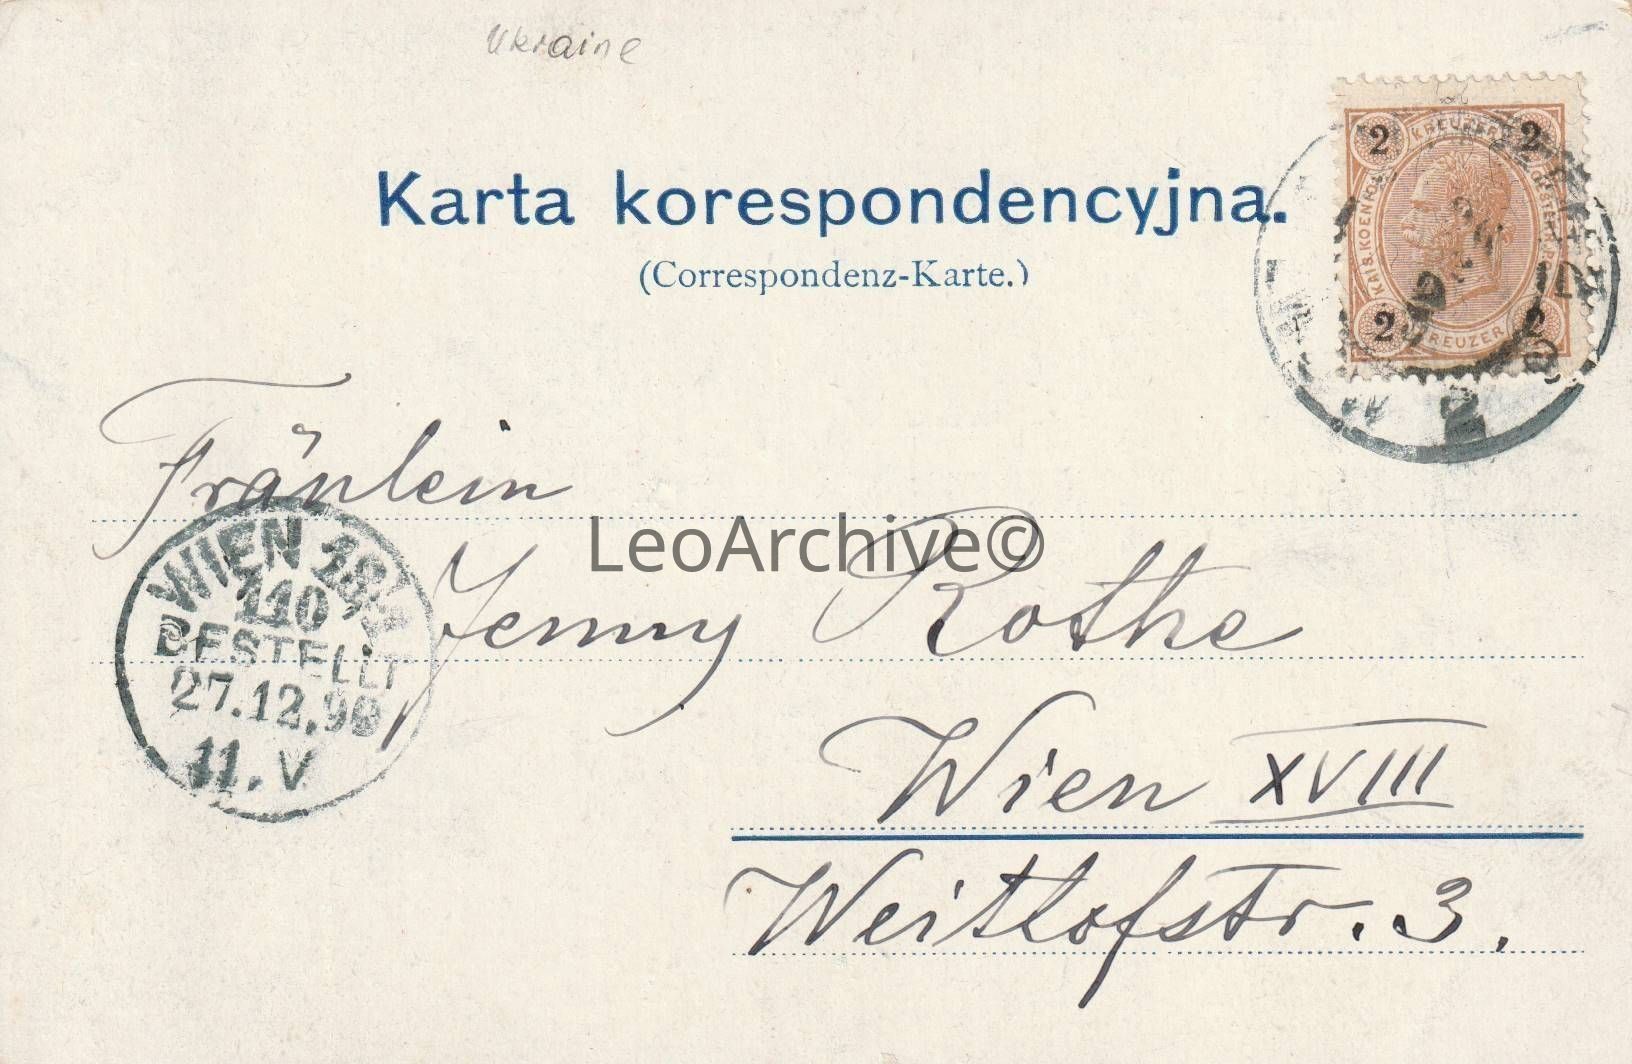 Ukraine
Karta korespondencyjna.
(Correspondenz-Karte.)
2 KREUZER 2
KAIS. KOENIGL. OESTERR. POST
2 KREUZER 2
Fräulein
LeoArchive©
Jenny Rothe
WIEN 18/1
110
BESTELLT
27.12.98
11.V
Wien XVIII
Weitlofstr. 3.